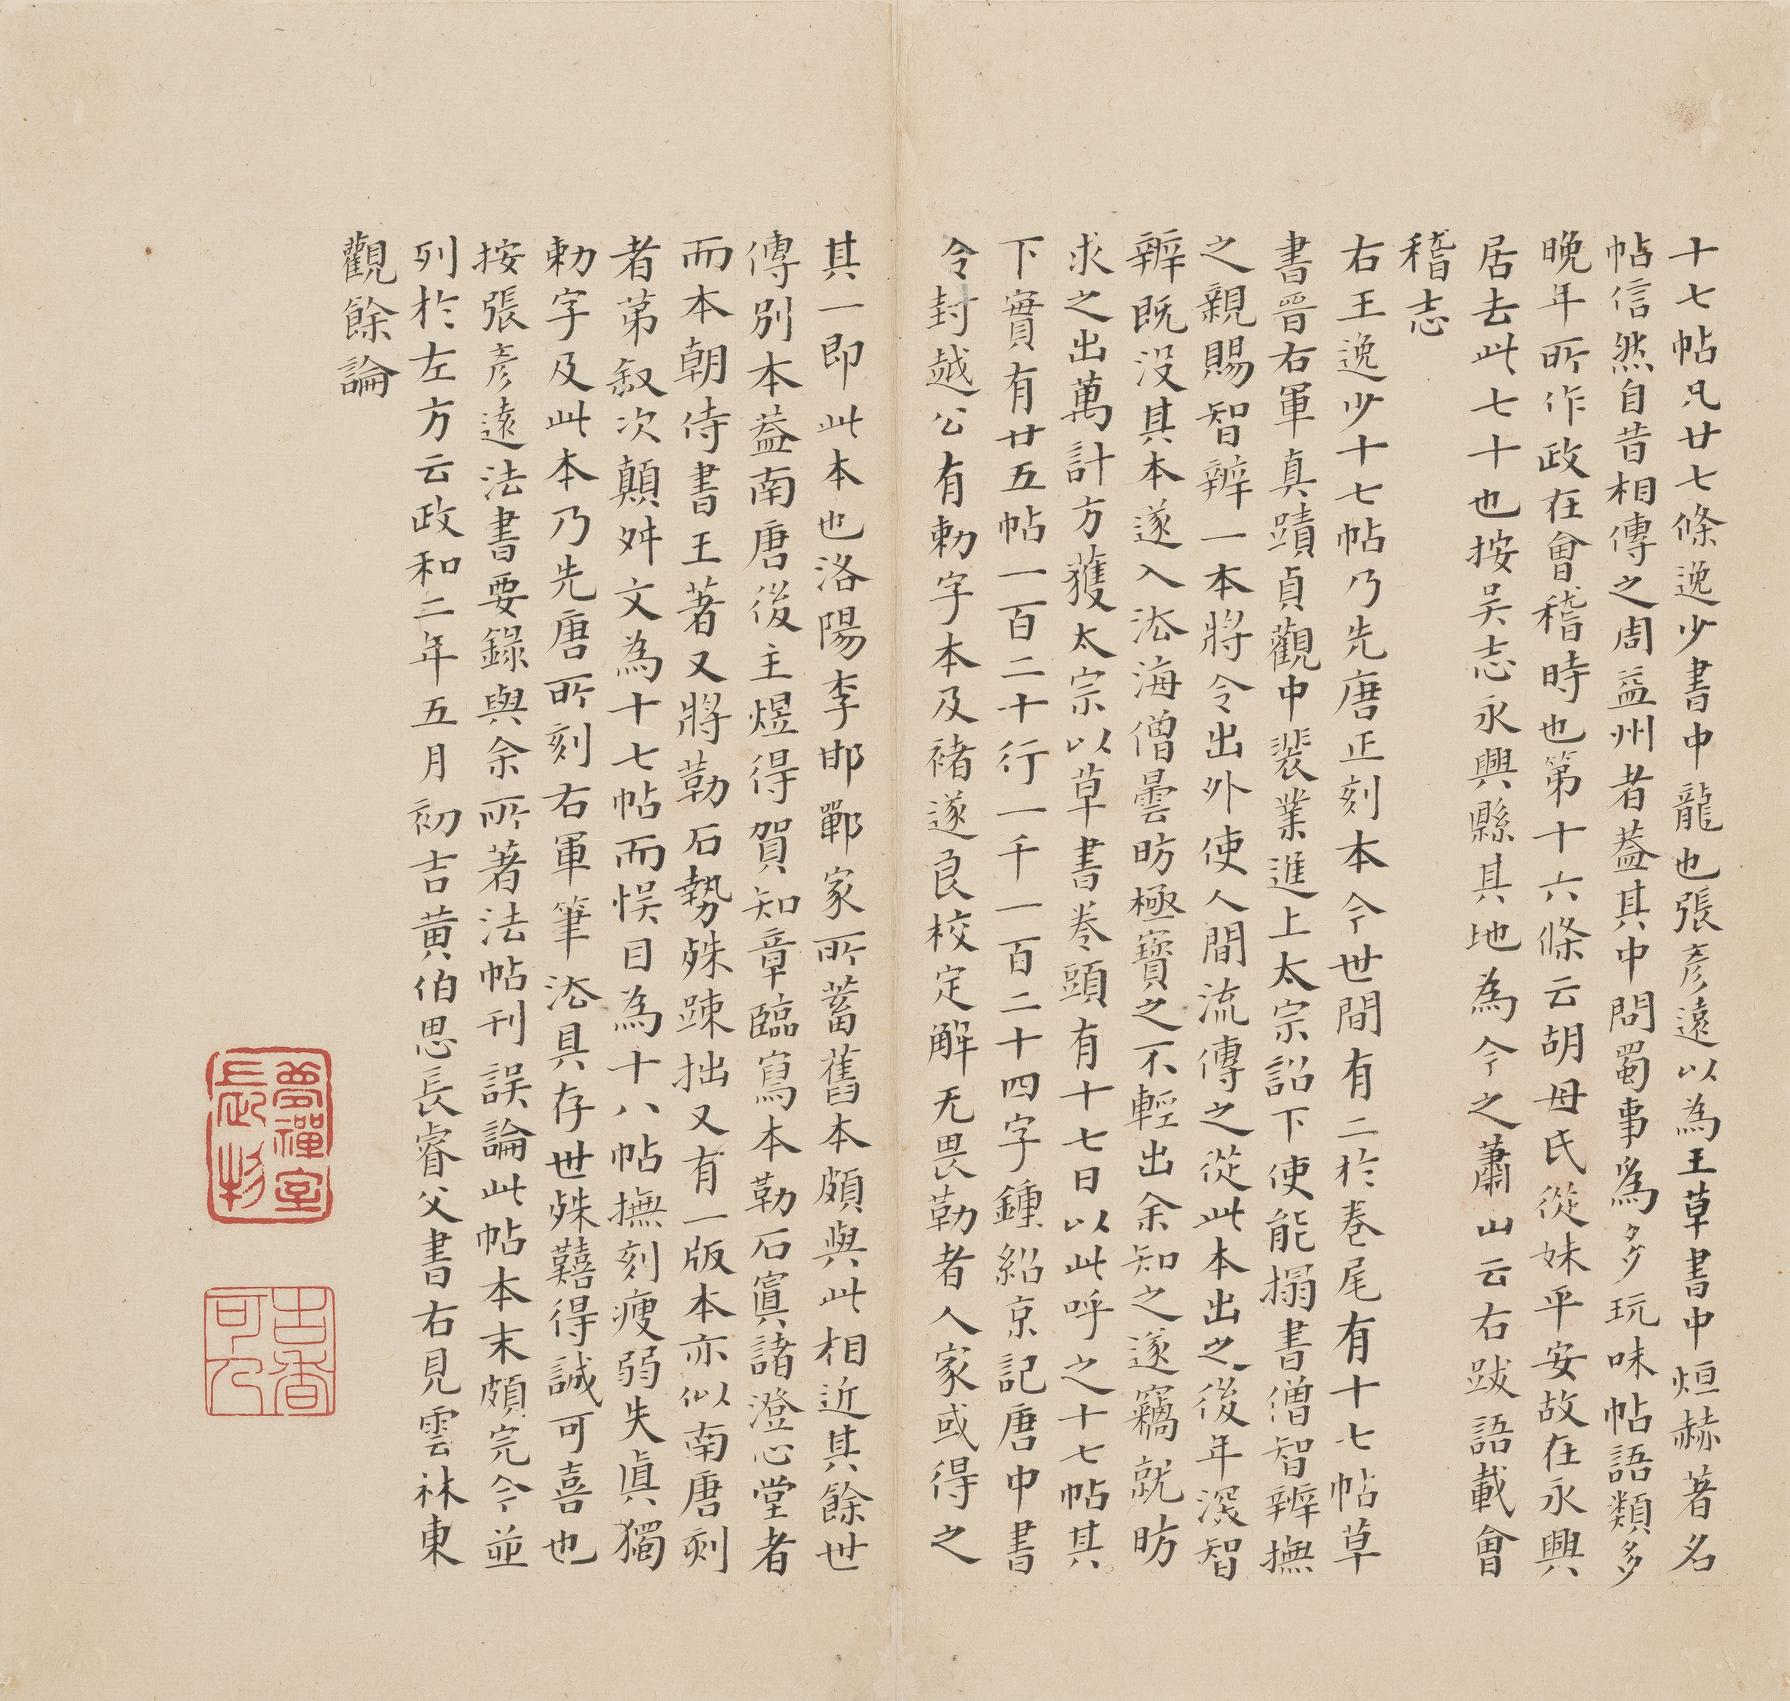 十七帖凡廿七條逸少書中龍也張彥遠以為王草書中烜赫著名
帖信然自昔相傳之周益州者葢其中問蜀事為多玩味帖語類多
晚年所作政在會稽時也第十六條云胡母氏從妹平安故在永興
居去此七十也按吴志永興縣其地為今之蕭山云右跋語載會
稽志
右王逸少十七帖乃先唐正刻本今世間有二於卷尾有十七帖草
書晉右軍真蹟貞觀中裴業進上太宗詔下使能搨書僧智辨撫
之親賜智辨一本將令出外使人間流傳之從此本出之後年深智
辨既没其本遂入㳒海僧曇昉極寶之不輕出余知之遂竊就昉
求之出萬計方獲太宗以草書卷頭有十七日以此呼之十七帖其
下實有廿五帖一百二十行一千一百二十四字鍾紹京記唐中書
令封越公有勅字本及褚遂良校定解无畏勒者人家或得之
其一即此本也洛陽李邯鄲家所蓄舊本頗與此相近其餘世
傳別本葢南唐後主煜得賀知章臨寫本勒石寘諸澄心堂者
而本朝侍書王著又將勒石勢殊踈拙又有一版本亦似南唐刻
者第叙次顛舛文為十七帖而悮目為十八帖撫刻瘦弱失真獨
勅字及此本乃先唐所刻右軍筆㳒具存世殊囏得誠可喜也
按張彥遠法書要錄與余所著法帖刊誤論此帖本末頗完今並
列於左方云政和二年五月初吉黄伯思長睿父書右見雲林東
觀餘論
夢禪室
長物
古香
可人